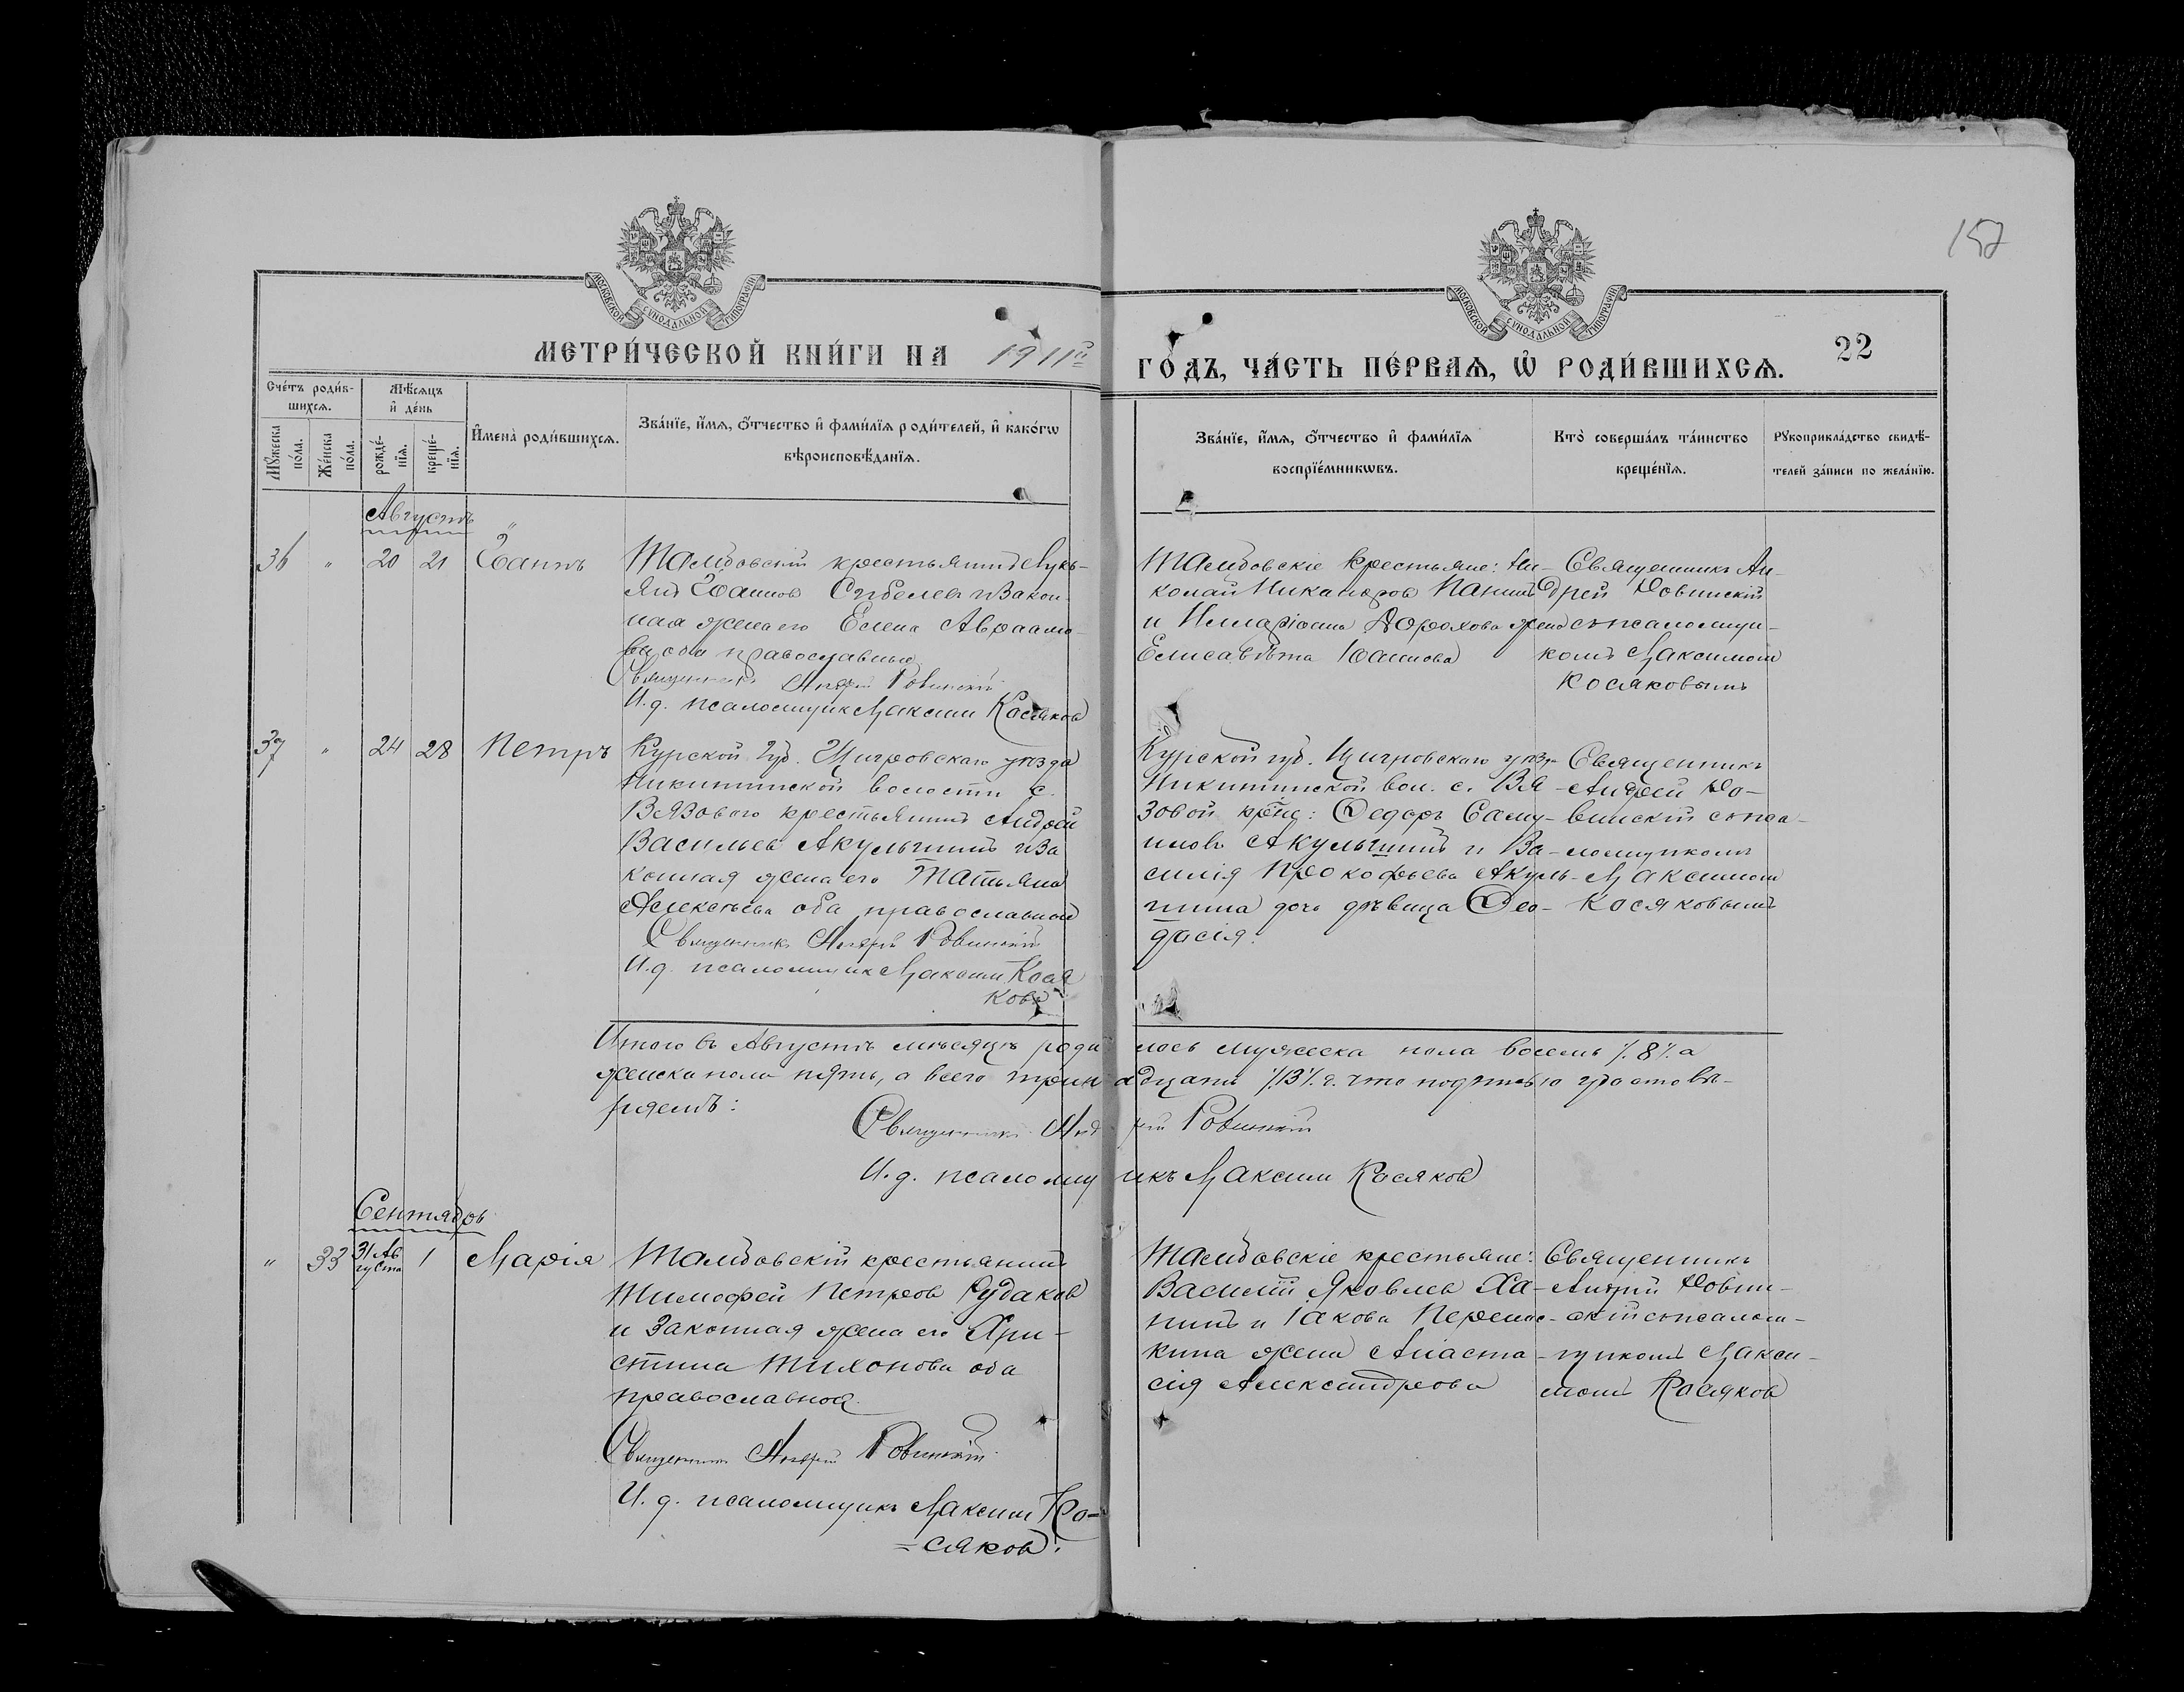 157
МОСКОВСКОЙ СѴНОДАЛЬНОЙ ТИПОГРАФІИ
МОСКОВСКОЙ СѴНОДАЛЬНОЙ ТИПОГРАФІИ
МЕТРИ́ЧЕСКОЙ КНИ́ГИ НА 1911й
ГО́ДЪ, ЧА́СТЬ ПЕ́РВАѦ, Ѡ҆ РОДИ́ВШИХСѦ.
22
Сче́тъ роди́в-
шихсѧ.
Мꙋ́жеска по́ла.
Же́нска по́ла.
Мѣ́сѧцъ
и҆ де́нь
рожде́-
нїѧ.
креще́-
нїѧ.
И҆мена̀ роди́вшихсѧ.
Зва́нїе, и҆́мѧ, ѻ҆́тчество и҆ фамі́лїѧ роди́телей, и҆ како́гѡ
вѣроисповѣ́данїѧ.
Зва́нїе, и҆́мѧ, ѻ҆́тчество и҆ фамі́лїѧ
воспрїе́мникѡвъ.
Кто̀ соверша́лъ та́инство
креще́нїѧ.
Рꙋкоприкла́дство свидѣ́-
телей за́писи по жела́нїю.
Августъ
36 " 20 21 Іоаннъ
крестьянинъ Лукь-
янъ Іоанновъ и закон-
ная жена его Елена Авраамо-
ва оба православные
Священникъ Андрей Ровинскій
И. д. псаломщик Максим Косяков
крестьяне: Ни-
колай Никаноров
и Иллариона Дорохова жена
Елисавѣта Іоаннова
Священникъ Ан-
дрей Ровинскій
съ псаломщи-
комъ Максимом
Косяковымъ
37 " 24 28 Петръ
Курской губ. Щигровскаго уѣзда
Никитинской волости с.
Вязового крестьянинъ Андрей
Васильев Акульшинъ и за
конная жена его Татьяна
Алексѣева оба православные
Священникъ Андрей Ровинскій
И. д. псаломщик Максим Кося
ков
Курской губ. Щигровскаго уѣз.
Никитинской вол. с. Вя-
зовой крест: Ѳедоръ Саму-
иловъ Акульшинъ и Ва-
силія Прокофьева Акуль-
шина дочь дѣвица Ѳео-
досія.
Священникъ
Андрей Ро-
винскій съ пса-
ломщикомъ
Максимом
Косяковымъ
Итого въ Августѣ мѣсяцѣ роди лось мужеска пола восемь /.8/. а
женска пола пять, а всего трин адцать /.13/. ч. что подписью удостовѣ-
ряемъ:
Священникъ Анд рей Ровинскій
И. д. псаломщ икъ Максим Косяков
Сентябрь
" 33 31 Ав густа 1 Марія
крестьянинъ
Тимофей Петров Рудаков
и законная жена его Хри-
стина Тихонова оба
православной.
Священникъ Андрей Ровинскій
И. д. псаломщикъ Максим Ко-
=сяков.
крестьяне:
Василій Яковлев Ха-
нинъ и Іакова
жена Анаста-
сія Александрова
Священникъ
Андрей Ровин-
скій съ псалом-
щикомъ Макси-
момъ Косяков